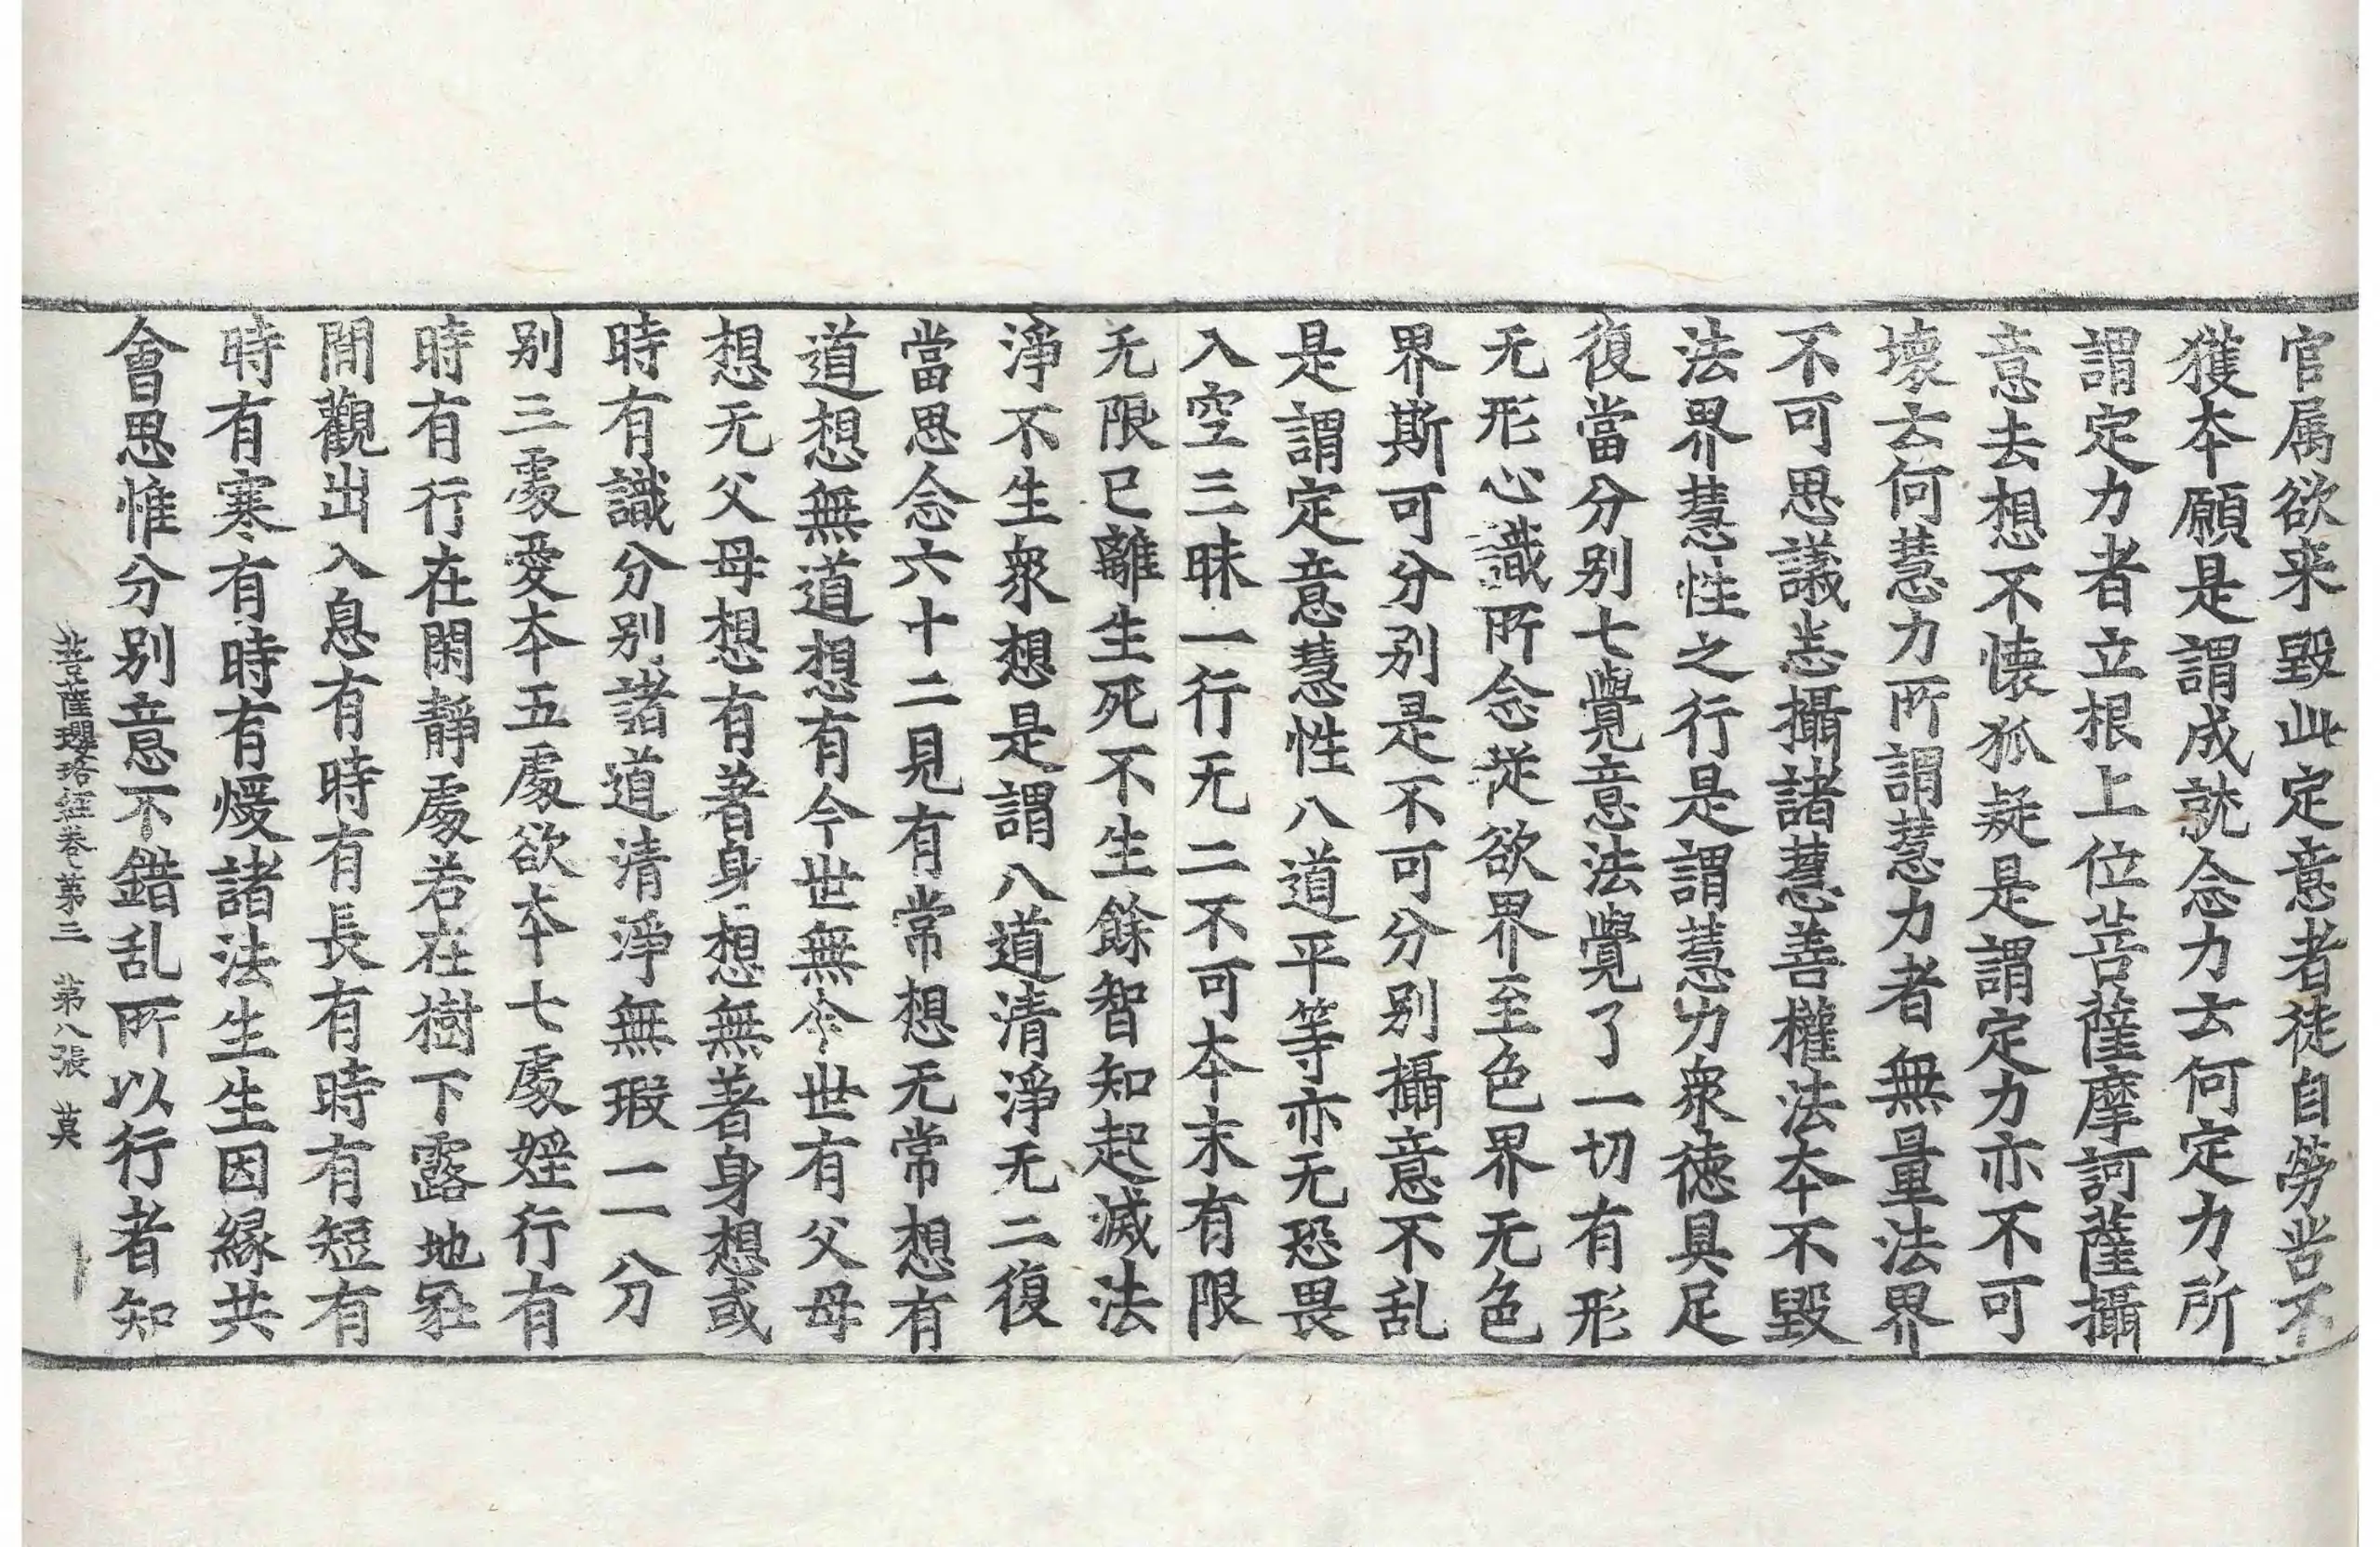 官属欲来毀此定意者徒自勞苦不
獲本願是謂成就念力云何定力所
謂定力者立根上位菩薩摩訶薩攝
意去想不懐狐疑是謂定力亦不可
壊云何慧力所謂慧力者無量法界
不可思議恚攝諸慧善權法本不毀
法界慧性之行是謂慧力衆徳具足
復當分别七覺意法覺了一切有形
无形心識所念從欲界至色界无色
界斯可分别是不可分别攝意不乱
是謂定意慧性八道平等亦无恐畏
入空三昧一行无二不可本末有限
无限已離生死不生餘智知起滅法
淨不生衆想是謂八道清淨无二復
當思念六十二見有常想无常想有
道想無道想有今世無今世有父母
想无父母想有著身想無著身想或
時有識分别諸道清淨無瑕一一分
别三處愛本五處欲本七處婬行有
時有行在閑靜處若在樹下露地冢
間觀出入息有時有長有時有短有
時有寒有時有煖諸法生生因縁共
會思惟分别意不錯乱所以行者知
菩薩瓔珞經卷第三 第八張 莫